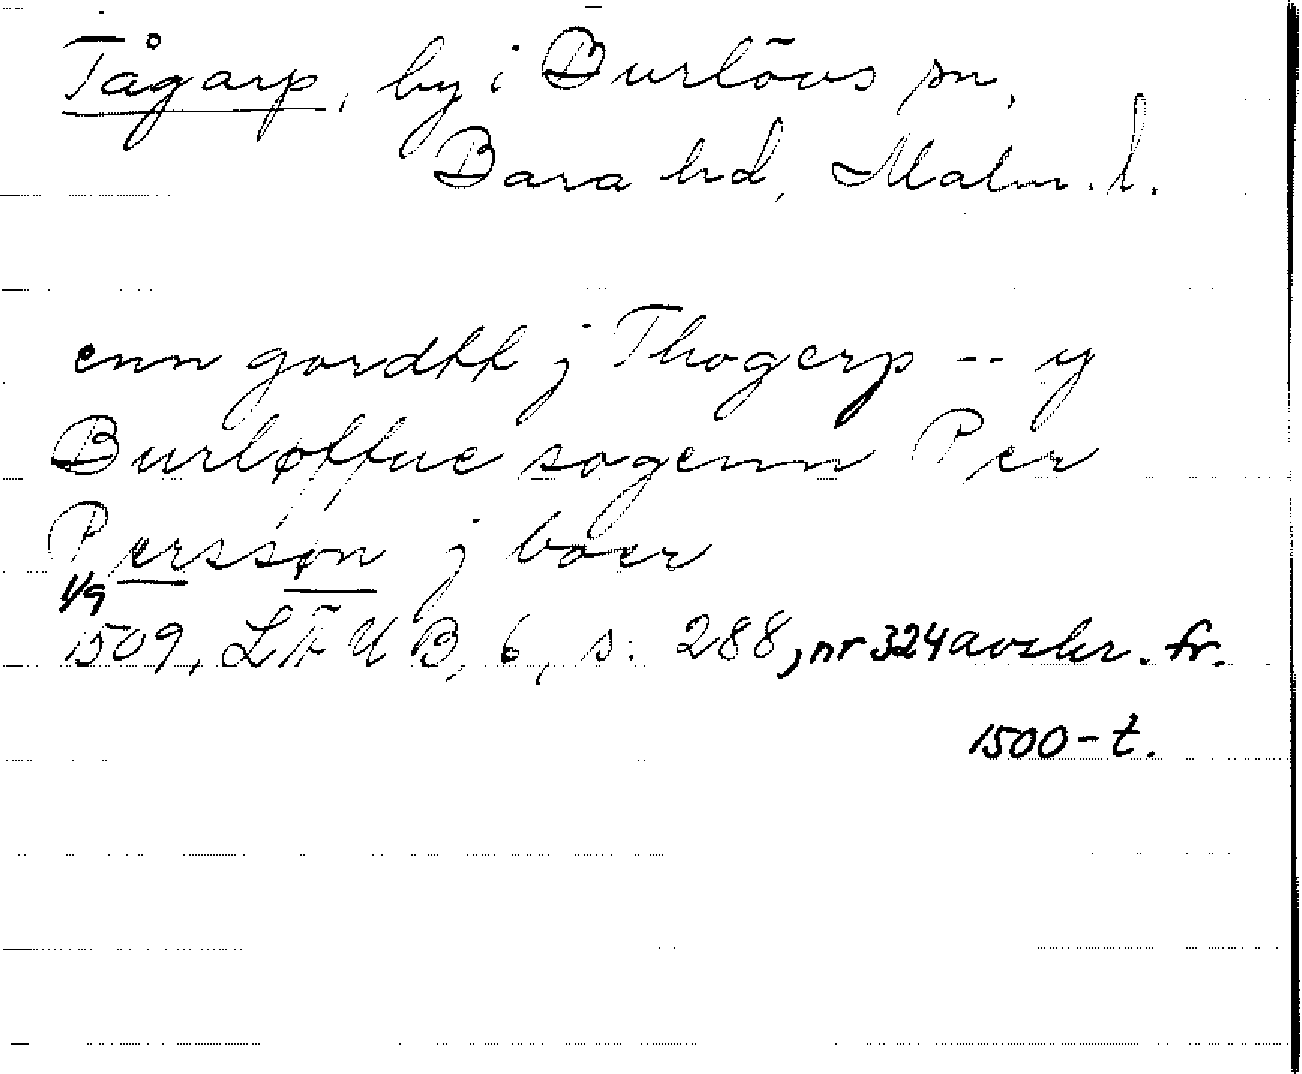 Tågarp, by i Burlövs sn,
Bara hd, Malm. l.
enn gordtt j Thogerp -- y
Burløffue sogenn Per
Perssøn j boer
1/9
1509, LÄUB, 6, s. 288, nr 324 avskr. fr.
1500-t.